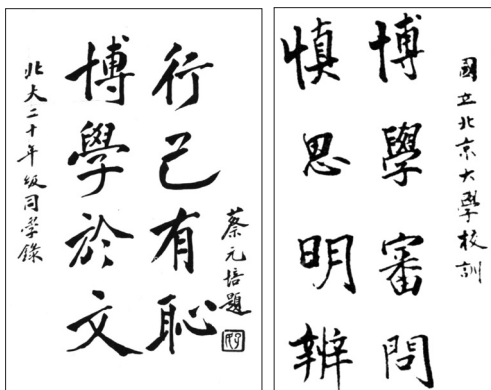 蔡元培題
行己有恥
博學於文
北大二十年級同學錄
國立北京大學校訓
博學審問
慎思明辨